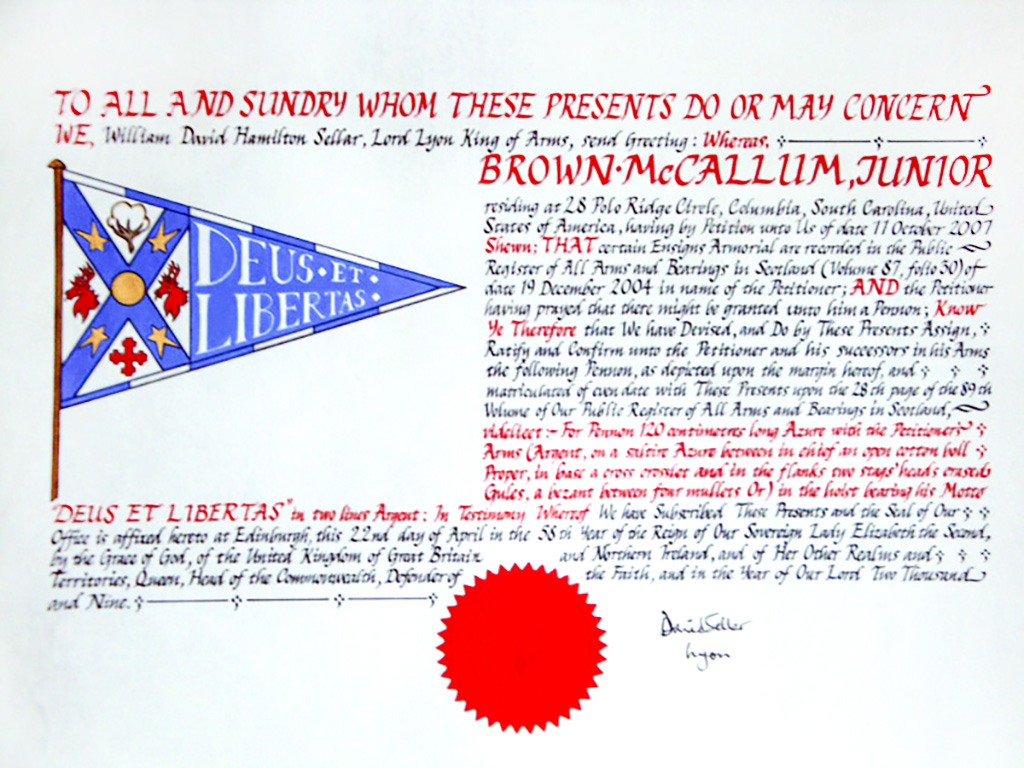 TO ALL AND SUNDRY WHOM THESE PRESENTS DO OR MAY CONCERN
WE, William David Hamilton Sellar, Lord Lyon King of Arms, send Greeting: Whereas,
BROWN·McCALLUM, JUNIOR
residing at 28 Polo Ridge Circle, Columbia, South Carolina, United
States of America, having by Petition unto Us of date 11 October 2007
Shewn; THAT certain Ensigns Armorial are recorded in the Public
Register of All Arms and Bearings in Scotland (Volume 87, folio 30) of
date 19 December 2004 in name of the Petitioner; AND the Petitioner
having prayed that there might be granted unto him a Pennon; Know
Ye Therefore that We have Devised, and Do by These Presents Assign,
Ratify and Confirm unto the Petitioner and his successors in his Arms
the following Pennon, as depicted upon the margin hereof, and
matriculated of even date with These Presents upon the 28th page of the 89th
Volume of Our Public Register of All Arms and Bearings in Scotland,
videlicet:- For Pennon 120 centimetres long Azure with the Petitioner's
Arms (Argent, on a saltire Azure between in chief an open cotton boll
Proper, in base a cross crosslet and in the flanks two stags' heads erased
Gules, a bezant between four mullets Or) in the hoist bearing his Motto
"DEUS ET LIBERTAS" in two lines Argent: In Testimony Whereof We have Subscribed These Presents and the Seal of Our
Office is affixed hereto at Edinburgh, this 22nd day of April in the 58th Year of the Reign of Our Sovereign Lady Elizabeth the Second,
by the Grace of God, of the United Kingdom of Great Britain and Northern Ireland, and of Her Other Realms and
Territories, Queen, Head of the Commonwealth, Defender of the Faith, and in the Year of Our Lord Two Thousand
and Nine.
DEUS·ET·
LIBERTAS·
David Sellar
Lyon